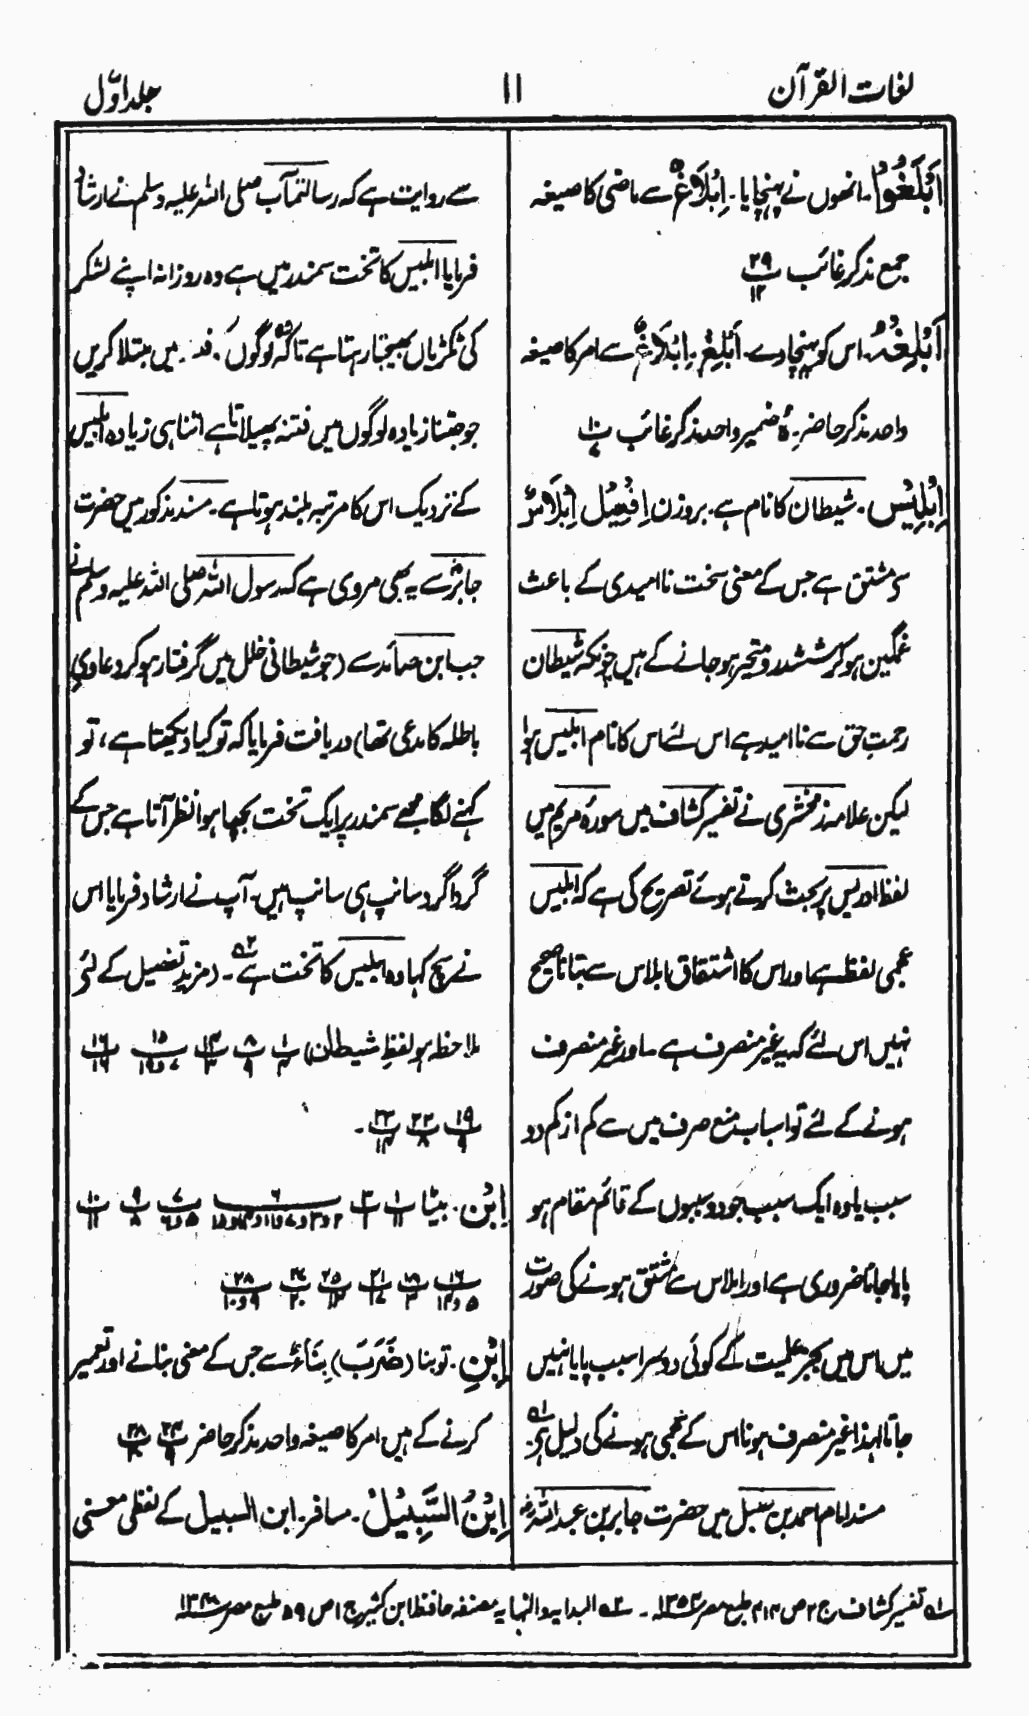 لغات القرآن
۱۱
جلد اوّل
اَبْلَغُوْا۔ انھوں نے پہنچایا۔ اِبْلَاغٌ سے ماضی کا صیغہ
جمع مذکر غائب ۲۹/۱۲
اَبْلِغْهُ۔ اس کو پہنچا دے۔ اَبْلِغْ۔ اِبْلَاغٌ سے امر کا صیغہ
واحد مذکر حاضر۔ هُ ضمیر واحد مذکر غائب
اِبْلِیْس۔ شیطان کا نام ہے۔ بروزن اِفْعِیْل اِبْلَاسٌ
سے مشتق ہے جس کے معنی سخت نا امیدی کے باعث
غمگین ہو کر ششدر و متحیر ہو جانے کے ہیں چونکہ شیطان
رحمتِ حق سے نا امید ہے اس لئے اس کا نام ابلیس ہوا
لیکن علامہ زمخشری نے تفسیر کشاف میں سورہ مریم میں
لفظ ادریس پر بحث کرتے ہوئے تصریح کی ہے کہ ابلیس
عجمی لفظ ہے اور اس کا اشتقاق ابلاس سے بتانا صحیح
نہیں اس لئے کہ یہ غیر منصرف ہے۔ اور غیر منصرف
ہونے کے لئے تو اسباب منع صرف میں سے کم از کم دو
سبب یا وہ ایک سبب جو دو سببوں کے قائم مقام ہو
پایا جانا ضروری ہے اور ابلاس سے مشتق ہونے کی صورت
میں اس میں بجز علمیت کے کوئی دوسرا سبب پایا نہیں
جاتا لہذا غیر منصرف ہونا اس کے عجمی ہونے کی دلیل ہے۔ ۱؎
مسند امام احمد بن حنبل میں حضرت جابر بن عبد اللہ
سے روایت ہے کہ رسالتمآب صلی اللہ علیہ وسلم نے ارشاد
فرمایا ابلیس کا تخت سمندر میں ہے وہ روزانہ اپنے لشکر
کی ٹکڑیاں بھیجتا رہتا ہے تاکہ وہ لوگوں میں مبتلا کریں
جو جتنا زیادہ لوگوں میں فتنہ پھیلاتا ہے اتنا ہی زیادہ ابلیس
کے نزدیک اس کا مرتبہ بلند ہوتا ہے۔ مسند مذکور میں حضرت
جابرؓ سے یہ بھی مروی ہے کہ رسول اللہ صلی اللہ علیہ وسلم نے
جب ابن صائد سے (جو شیطانی خلل میں گرفتار ہو کر دعاوی
باطلہ کا مدعی تھا) دریافت فرمایا کہ تو کیا دیکھتا ہے، تو
کہنے لگا مجھے سمندر پر ایک تخت بچھا ہوا نظر آتا ہے جس کے
گرداگرد سانپ ہی سانپ ہیں۔ آپ نے ارشاد فرمایا اس
نے سچ کہا وہ ابلیس کا تخت ہے ۲؎۔ (مزید تفصیل کے لئے
ملاحظہ ہو لفظِ شیطان) ۱/۴ ۸/۹ ۱۴/۳ ۱۵/۷و۱۹ ۱۶/۱۹
۱۹/۹ ۲۲/۸ ۲۳/۱۴۔
اِبْن۔ بیٹا ۱/۱۱ ۳/۲ ۶ ۷/۵و۶ ۹/۸ ۱۰/۱۱
۱۶/۵و۱۴ ۱۸/۳ ۲۱/۷ ۲۵/۱۲ ۲۷/۲۰ ۲۸/۹و۱۰
اِبْنِ۔ تو بنا (ضَرَبَ) بِنَاءٌ سے جس کے معنی بنانے اور تعمیر
کرنے کے ہیں امر کا صیغہ واحد مذکر حاضر ۲۴/۹ ۲۸/۲۰
اِبْنُ السَّبِیْلْ۔ مسافر۔ ابن السبیل کے لفظی معنی
۱؎ تفسیر کشاف ج ۲ ص ۴۱۳ طبع مصر ۱۳۵۴ھ۔ ۲؎ البدایہ والنہایہ مصنفہ حافظ ابن کثیر ج ۱ ص ۵۹ طبع مصر ۱۳۴۸ھ